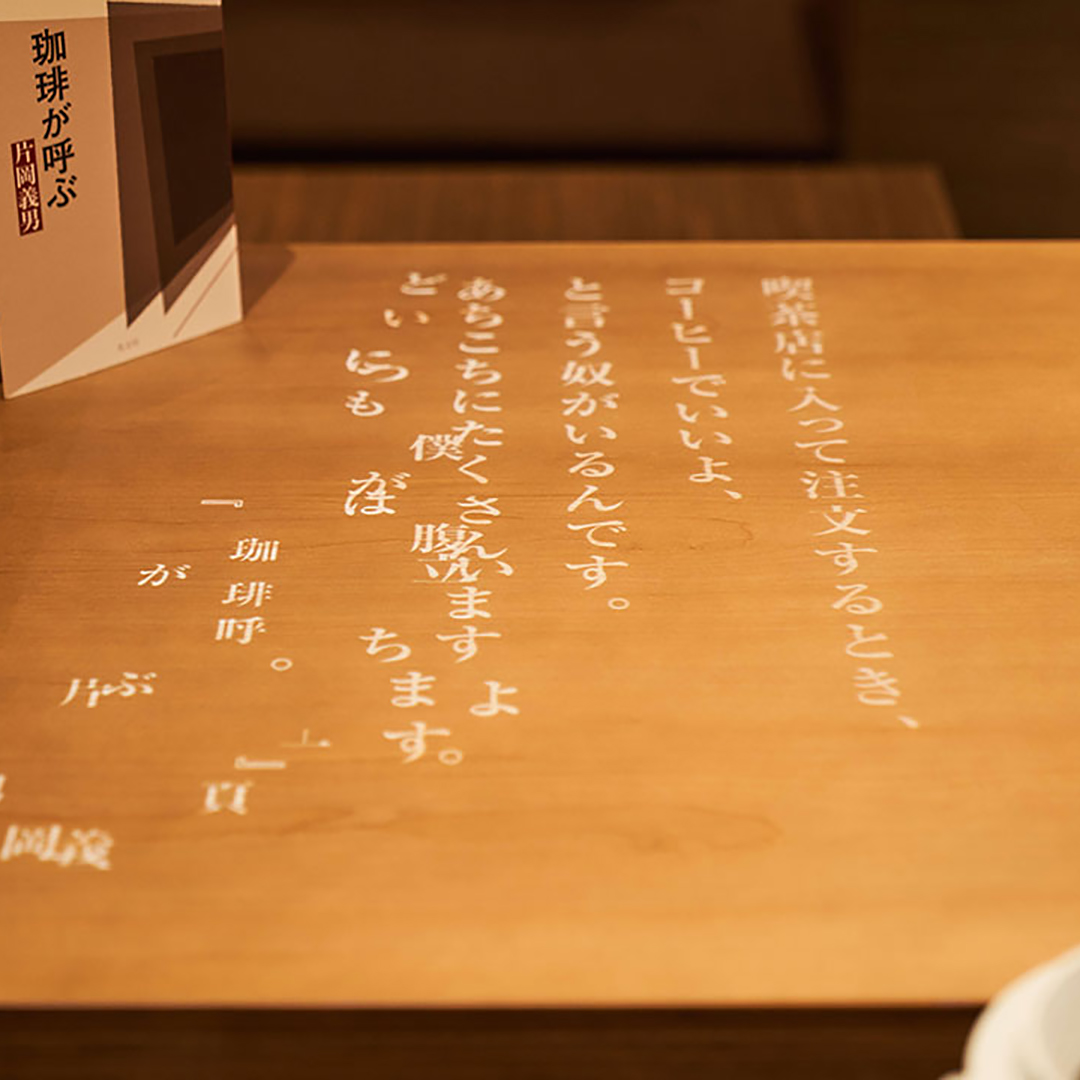 珈琲が呼ぶ
片岡義男
喫茶店に入って注文するとき、
コーヒーでいいよ、
と言う奴がいるんです。
あちこちにたくさんいますよ
僕
腹
ちます。
『珈琲
が
呼
ぶ
。
』
頁
片
岡義